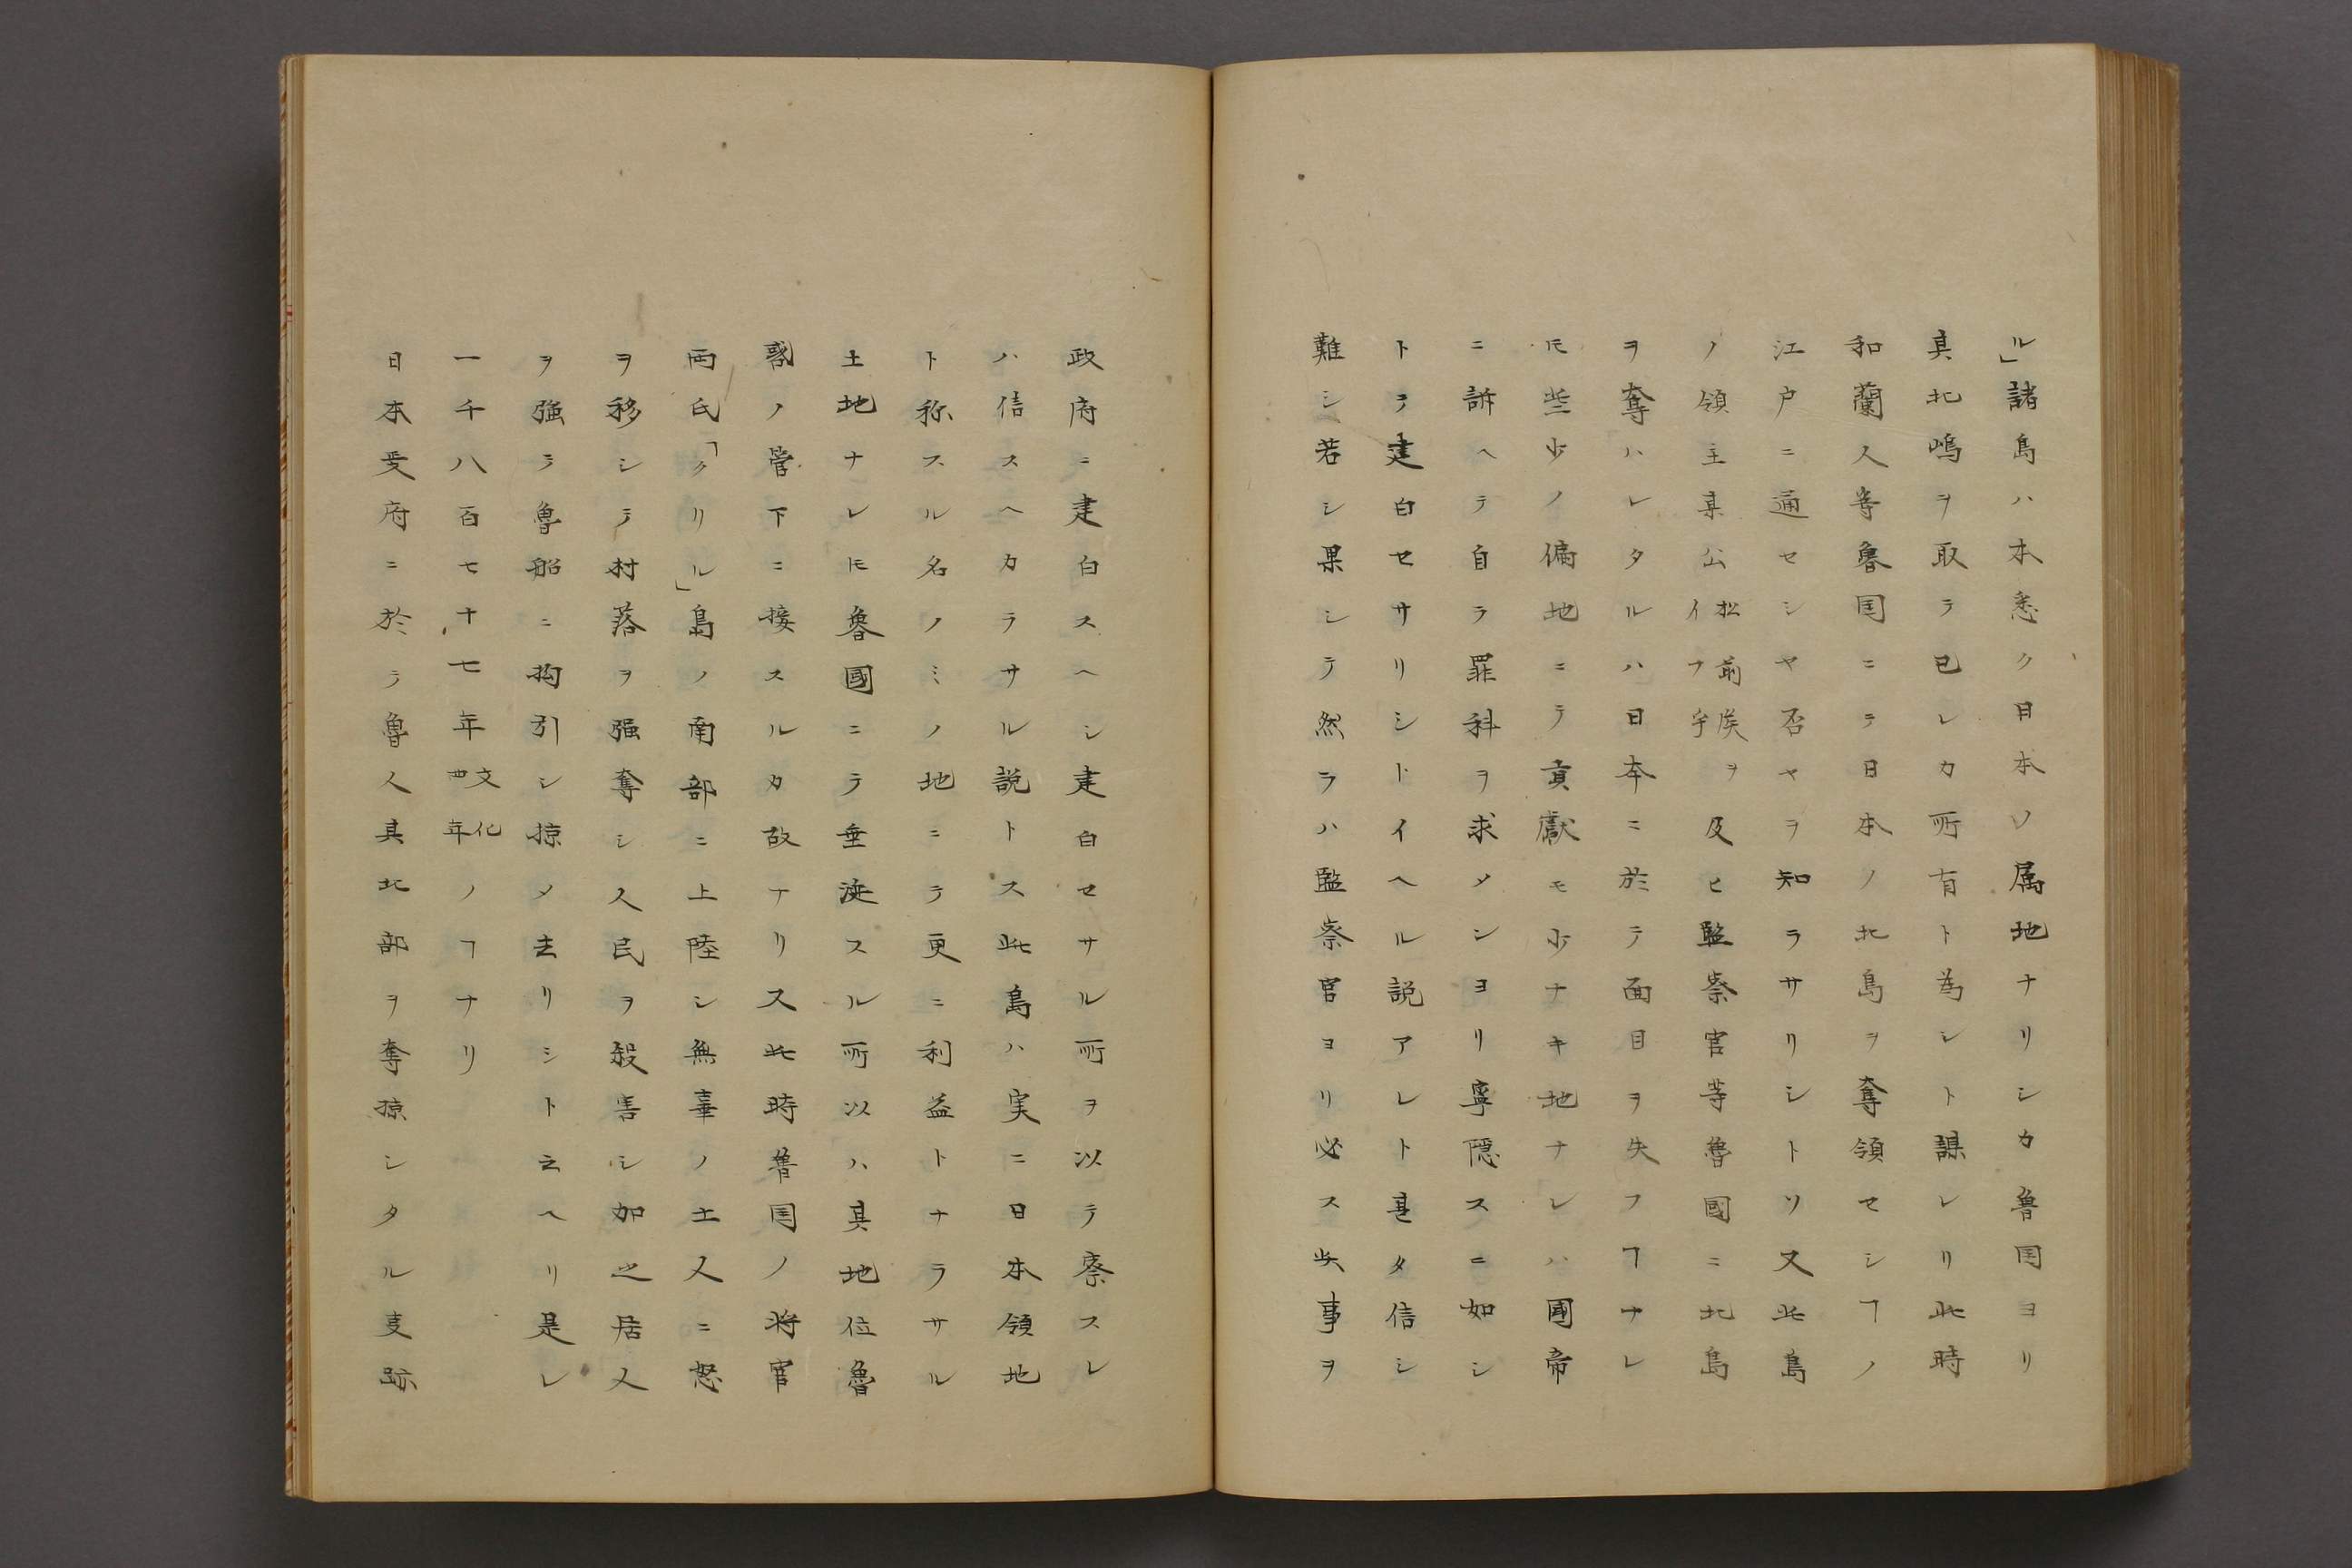 ル」諸島ハ本悉ク日本ノ属地ナリシカ魯囯ヨリ
其北嶋ヲ取テ已レカ所有ト為シト謀レリ此時
和蘭人等魯囯ニテ日本ノ北島ヲ奪領セシヿノ
江戸ニ通セシヤ否ヤヲ知ラサリシトソ又此島
ノ領主某公松前侯イフ乎ヲ及ヒ監察官等魯國ニ北島
ヲ奪ハレタルハ日本ニ於テ面目ヲ失フヿナレ
𪜈些少ノ偏地ニテ貢獻モ少ナキ地ナレハ國帝
ニ訴ヘテ自ラ罪科ヲ求メンヨリ寧隠スニ如シ
トテ建白セサリシトイヘル説アレト是タ信シ
難シ若シ果シテ然ラハ監察官ヨリ必ス此事ヲ
政府ニ建白スヘシ建白セサル所ヲ以テ察スレ
ハ信スヘカラサル説トス此島ハ実ニ日本領地
ト称スル名ノミノ地ニテ更ニ利益トナラサル
土地ナレ𪜈魯國ニテ垂涎スル所以ハ其地位魯
斎ノ管下ニ接スルカ故ナリ又此時魯囯ノ将官
両氏「クリル」島ノ南部ニ上陸シ無辜ノ土人ニ怒
ヲ移シテ村落ヲ强奪シ人民ヲ殺害シ加之居人
ヲ強テ魯船ニ拘引シ掠メ去リシト云ヘリ是レ
一千八百七十七年文化四年ノヿナリ
日本政府ニ於テ魯人其北部ヲ奪掠シタル叓跡